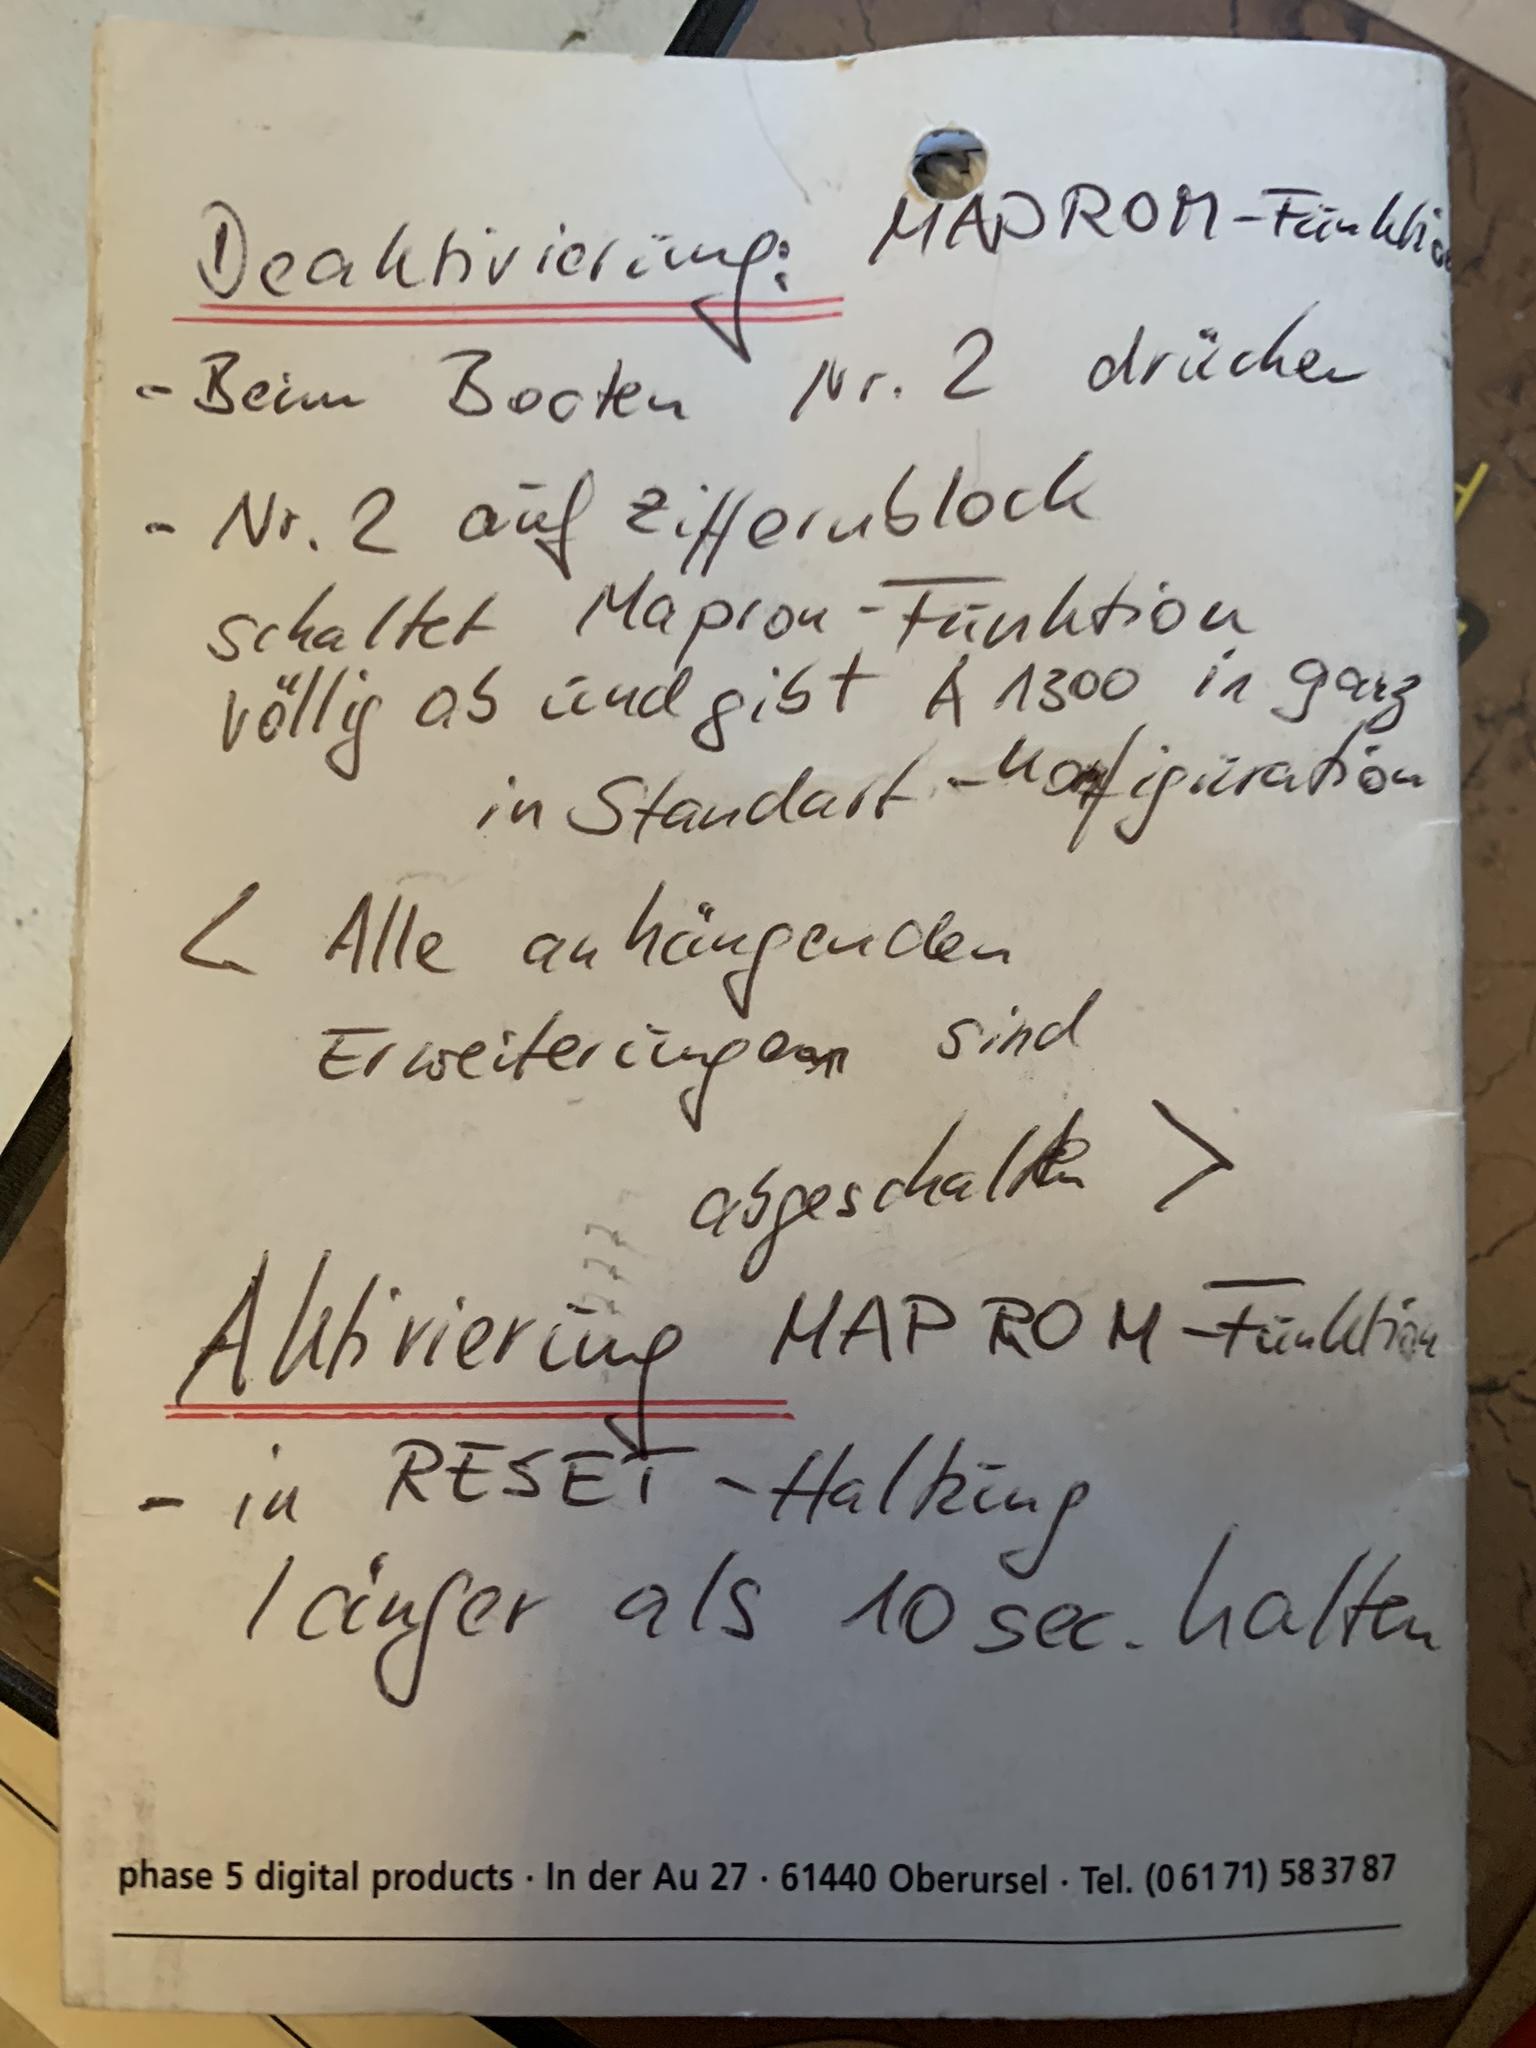 Deaktivierung: MAPROM-Funktion
- Beim Booten Nr. 2 drücken
- Nr. 2 auf Ziffernblock
schaltet Maprom-Funktion
völlig ab und gibt A 1300 in ganz
in Standart-Konfiguration
< Alle anhängenden
Erweiterungen sind
abgeschalten >
Aktivierung MAPROM-Funktion
- in RESET-Haltung
länger als 10 sec. halten
phase 5 digital products · In der Au 27 · 61440 Oberursel · Tel. (0 61 71) 58 37 87